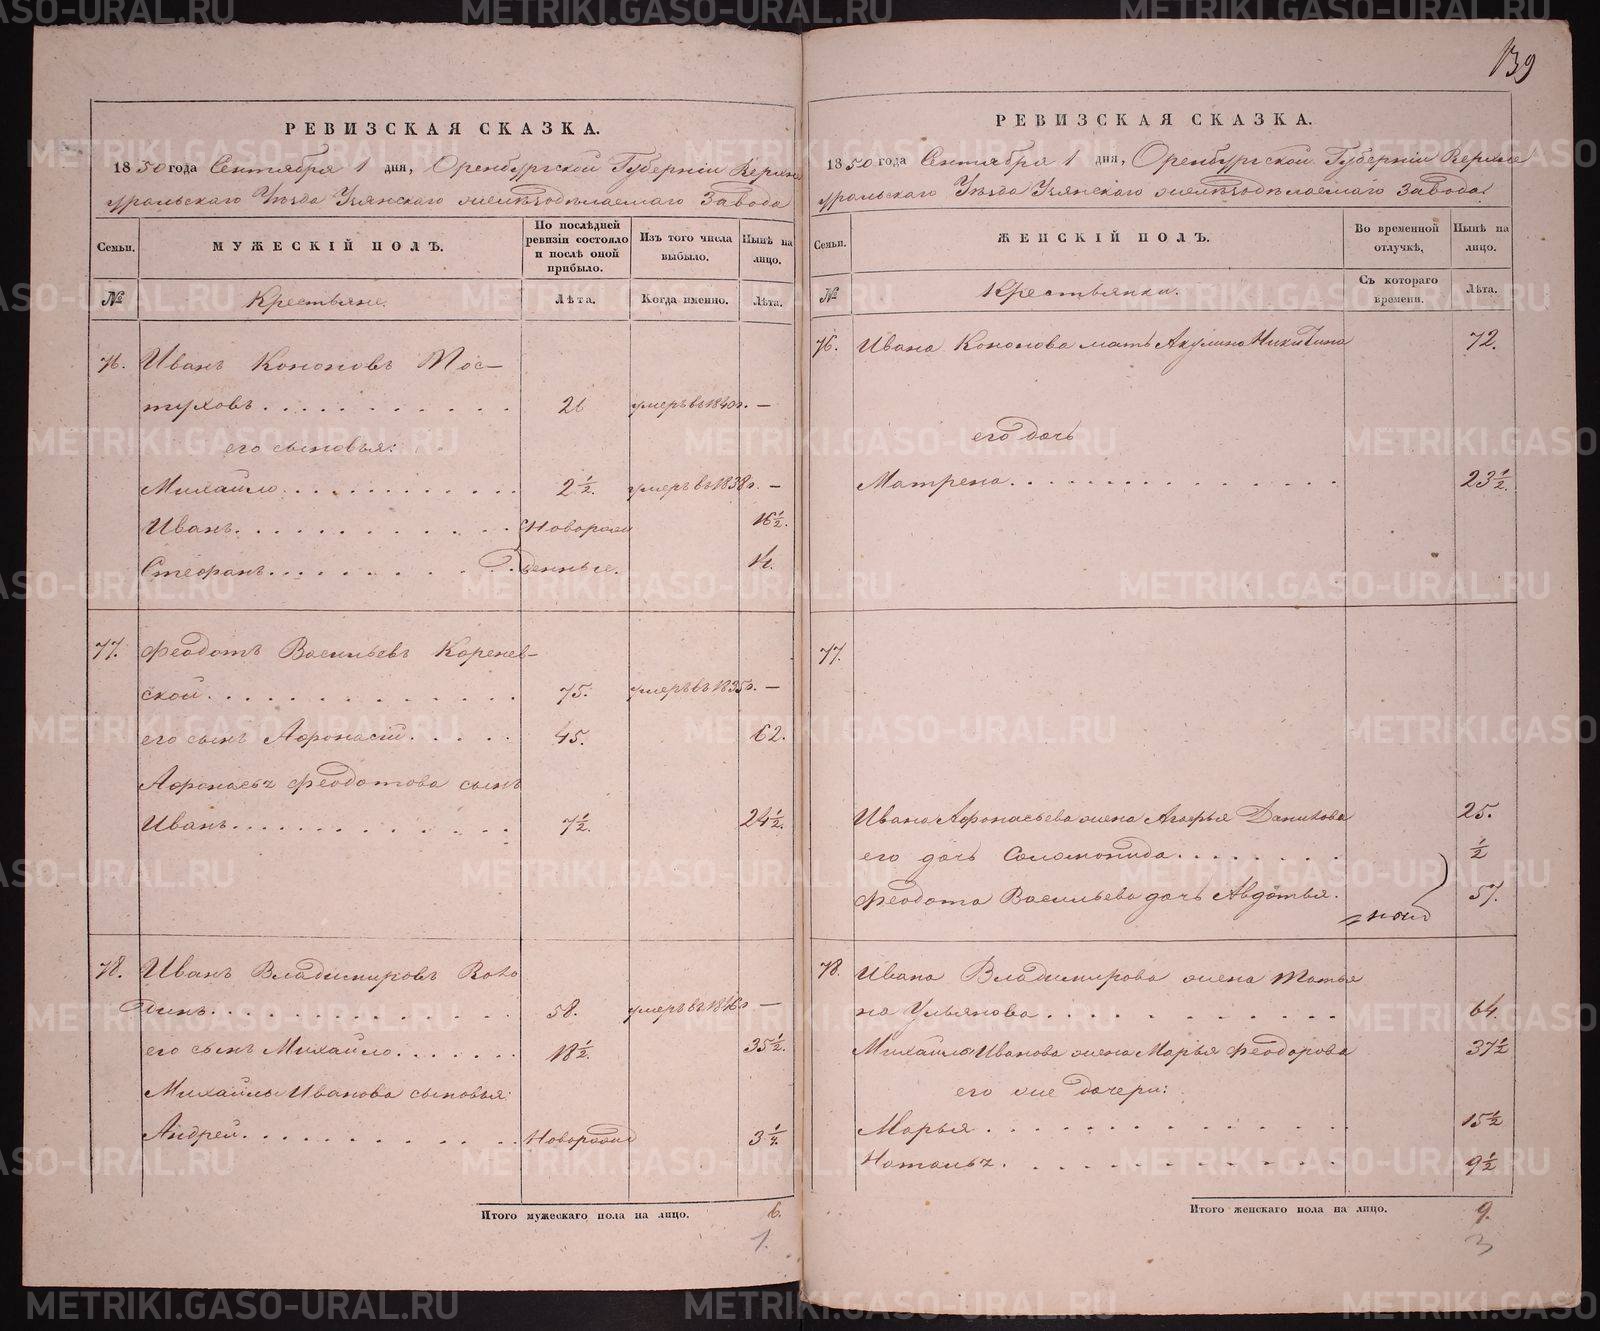 139
РЕВИЗСКАЯ СКАЗКА.
1850 года Сентября 1 дня, Оренбургской Губернiи Верхне
уральскаго Уѣзда Узянскаго желѣзодѣлаемаго Завода
Семьи.
МУЖЕСКIЙ ПОЛЪ.
По послѣдней ревизiи состояло и послѣ оной прибыло.
Изъ того числа выбыло.
Нынѣ на лицо.
№
Крестьяне.
Лѣта.
Когда именно.
Лѣта.
76. Иванъ Кононовъ Пас-
туховъ 26 умеръ въ 1840г. —
его сыновья:
Михайло 2½. умеръ въ 1838г. —
Иванъ Новорож 16½.
Стефанъ денные. 14.
77. Феодотъ Васильевъ Коренев-
ской 75. умеръ въ 1835г. —
его сынъ Афонасiй 45. 62.
Афонасья Феодотова сынъ
Иванъ 7½. 24½.
78. Иванъ Владимировъ
58. умеръ въ 1846г —
его сынъ Михайло 18½. 35½.
Михайлы Иванова сыновья:
Андрей Новорожд 3½.
Итого мужескаго пола на лицо. 6.
1.
РЕВИЗСКАЯ СКАЗКА.
1850 года Сентября 1 дня, Оренбургской Губернiи Верхне
уральскаго Уѣзда Узянскаго желѣзодѣлаемаго Завода.
Семьи.
ЖЕНСКIЙ ПОЛЪ.
Во временной отлучкѣ,
Нынѣ на лицо.
№
Крестьянки.
Съ котораго времени.
Лѣта.
76. Ивана Кононова мать Акулина Никитина 72.
его дочь
Матрена 23½.
77.
Ивана Афонасьева жена Агафья Данилова 25.
его дочь Соломонида ½
Феодота Васильева дочь Авдотья. 57.
78. Ивана Владимирова жена Татья
на Ульянова 64.
Михайлы Иванова жена Марья Феодорова 37½
его же дочери:
Марья 15½
Наталья 9½
Итого женскаго пола на лицо. 9.
3
METRIKI.GASO-URAL.RU